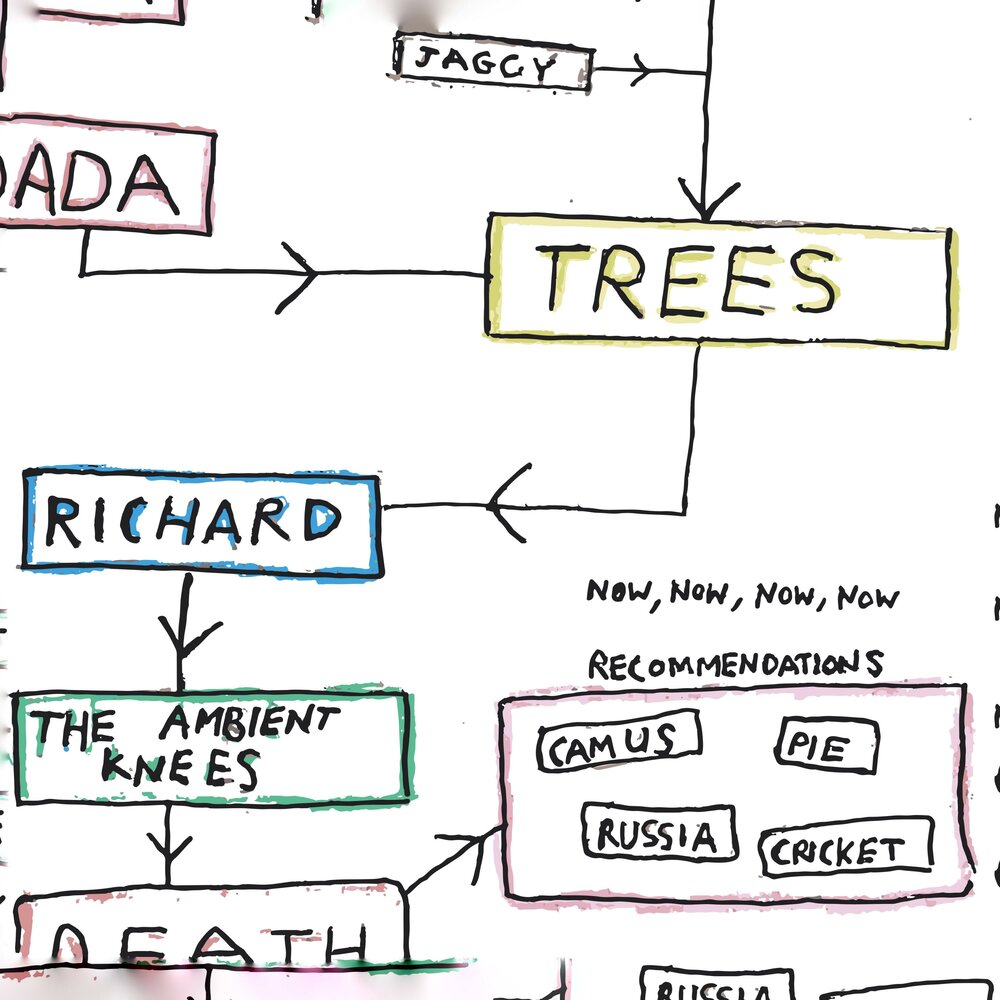 JAGGY
DADA
TREES
RICHARD
NOW, NOW, NOW, NOW
RECOMMENDATIONS
THE AMBIENT
KNEES
CAMUS
PIE
RUSSIA
CRICKET
DEATH
RUSSIA